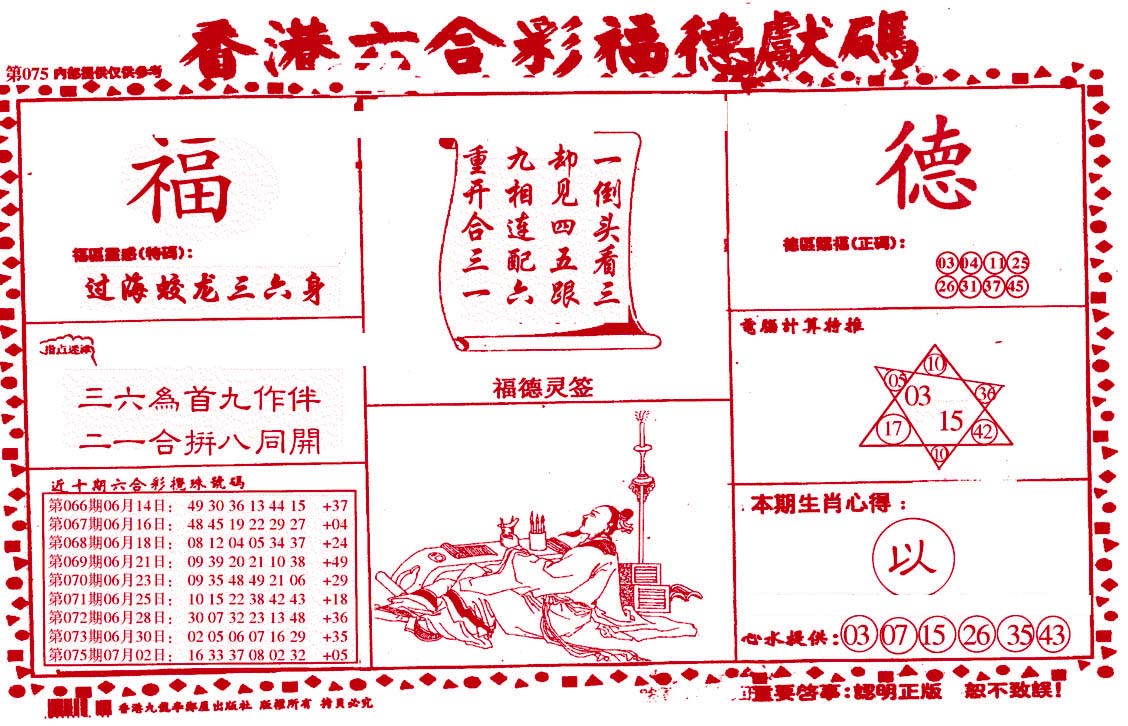 香港六合彩福德獻碼
第075 内部提供仅供参考
福
福區靈感(特碼):
过海蛟龙三六身
指点迷津
三六為首九作伴
二一合拼八同開
近十期六合彩攪珠號碼
第066期06月14日: 49 30 36 13 44 15 +37
第067期06月16日: 48 45 19 22 29 27 +04
第068期06月18日: 08 12 04 05 34 37 +24
第069期06月21日: 09 39 20 21 10 38 +49
第070期06月23日: 09 35 48 49 21 06 +29
第071期06月25日: 10 15 22 38 42 43 +18
第072期06月28日: 30 07 32 23 13 48 +36
第073期06月30日: 02 05 06 07 16 29 +35
第075期07月02日: 16 33 37 08 02 32 +05
一倒头看三
却见四五跟
九相连配六
重开合三一
福德灵签
德
德區賜福(正碼):
03 04 11 25
26 31 37 45
電腦計算特推
10
05 36
03
15
17 42
10
本期生肖心得:
以
心水提供: 03 07 15 26 35 43
香港九龍 出版社 版權所有 拷貝必究
重要啓事:認明正版 恕不致誤!